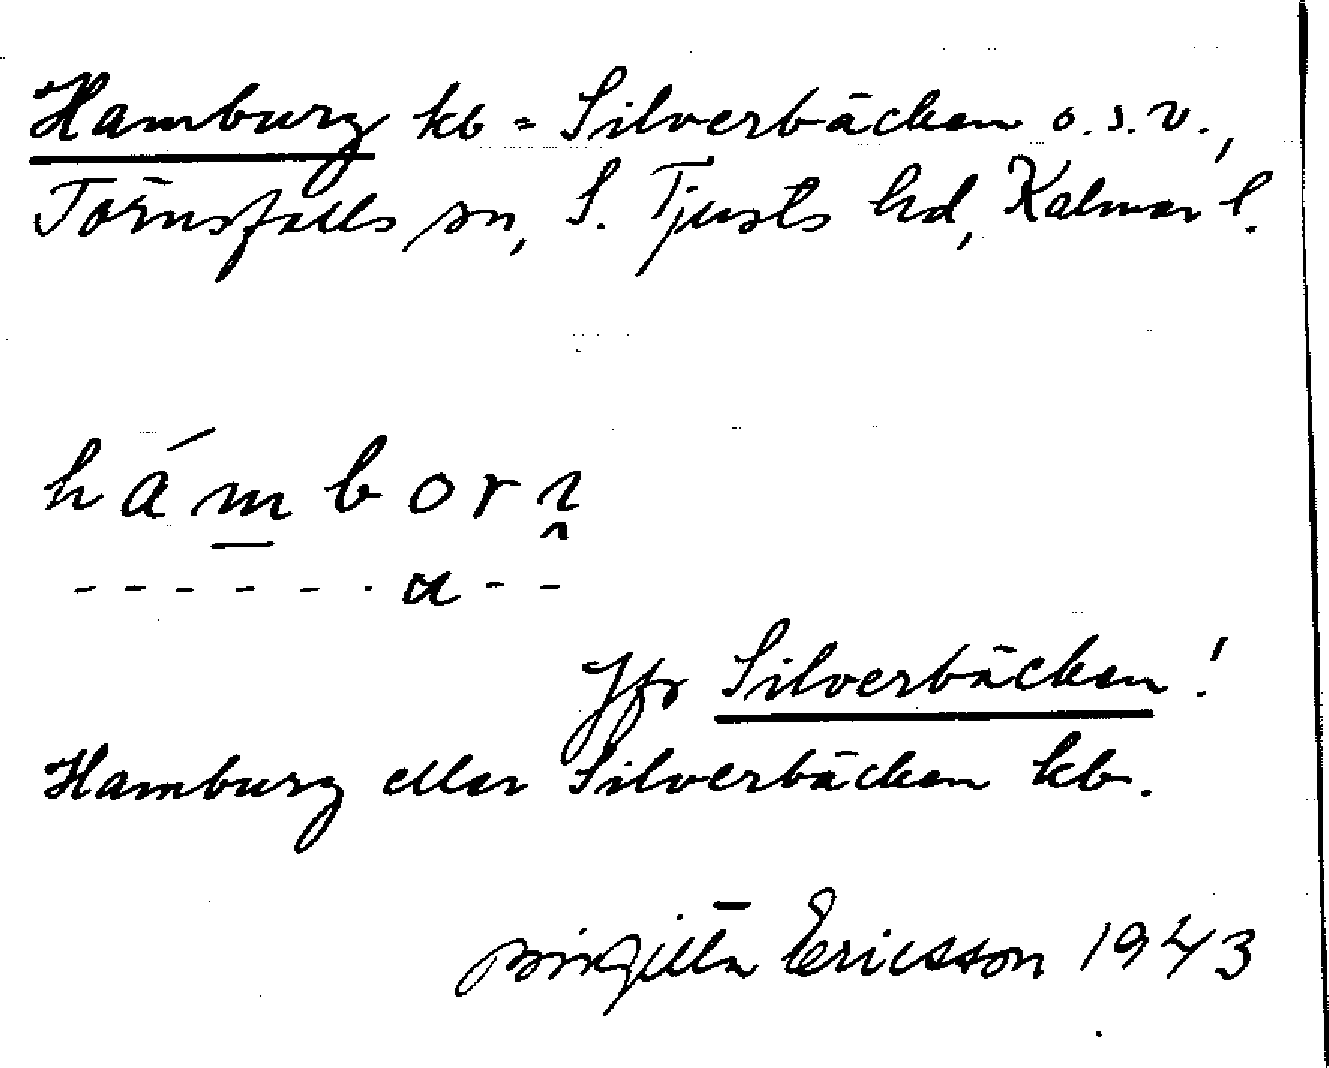 Hamburg kb = Silverbäcken o.s.v.,
Törnsfalls sn, S. Tjusts hd, Kalmar l.
hámborı
- - - - - - a - -
Jfr Silverbäcken!
Hamburg eller Silverbäcken kb.
Birgitta Ericsson 1943